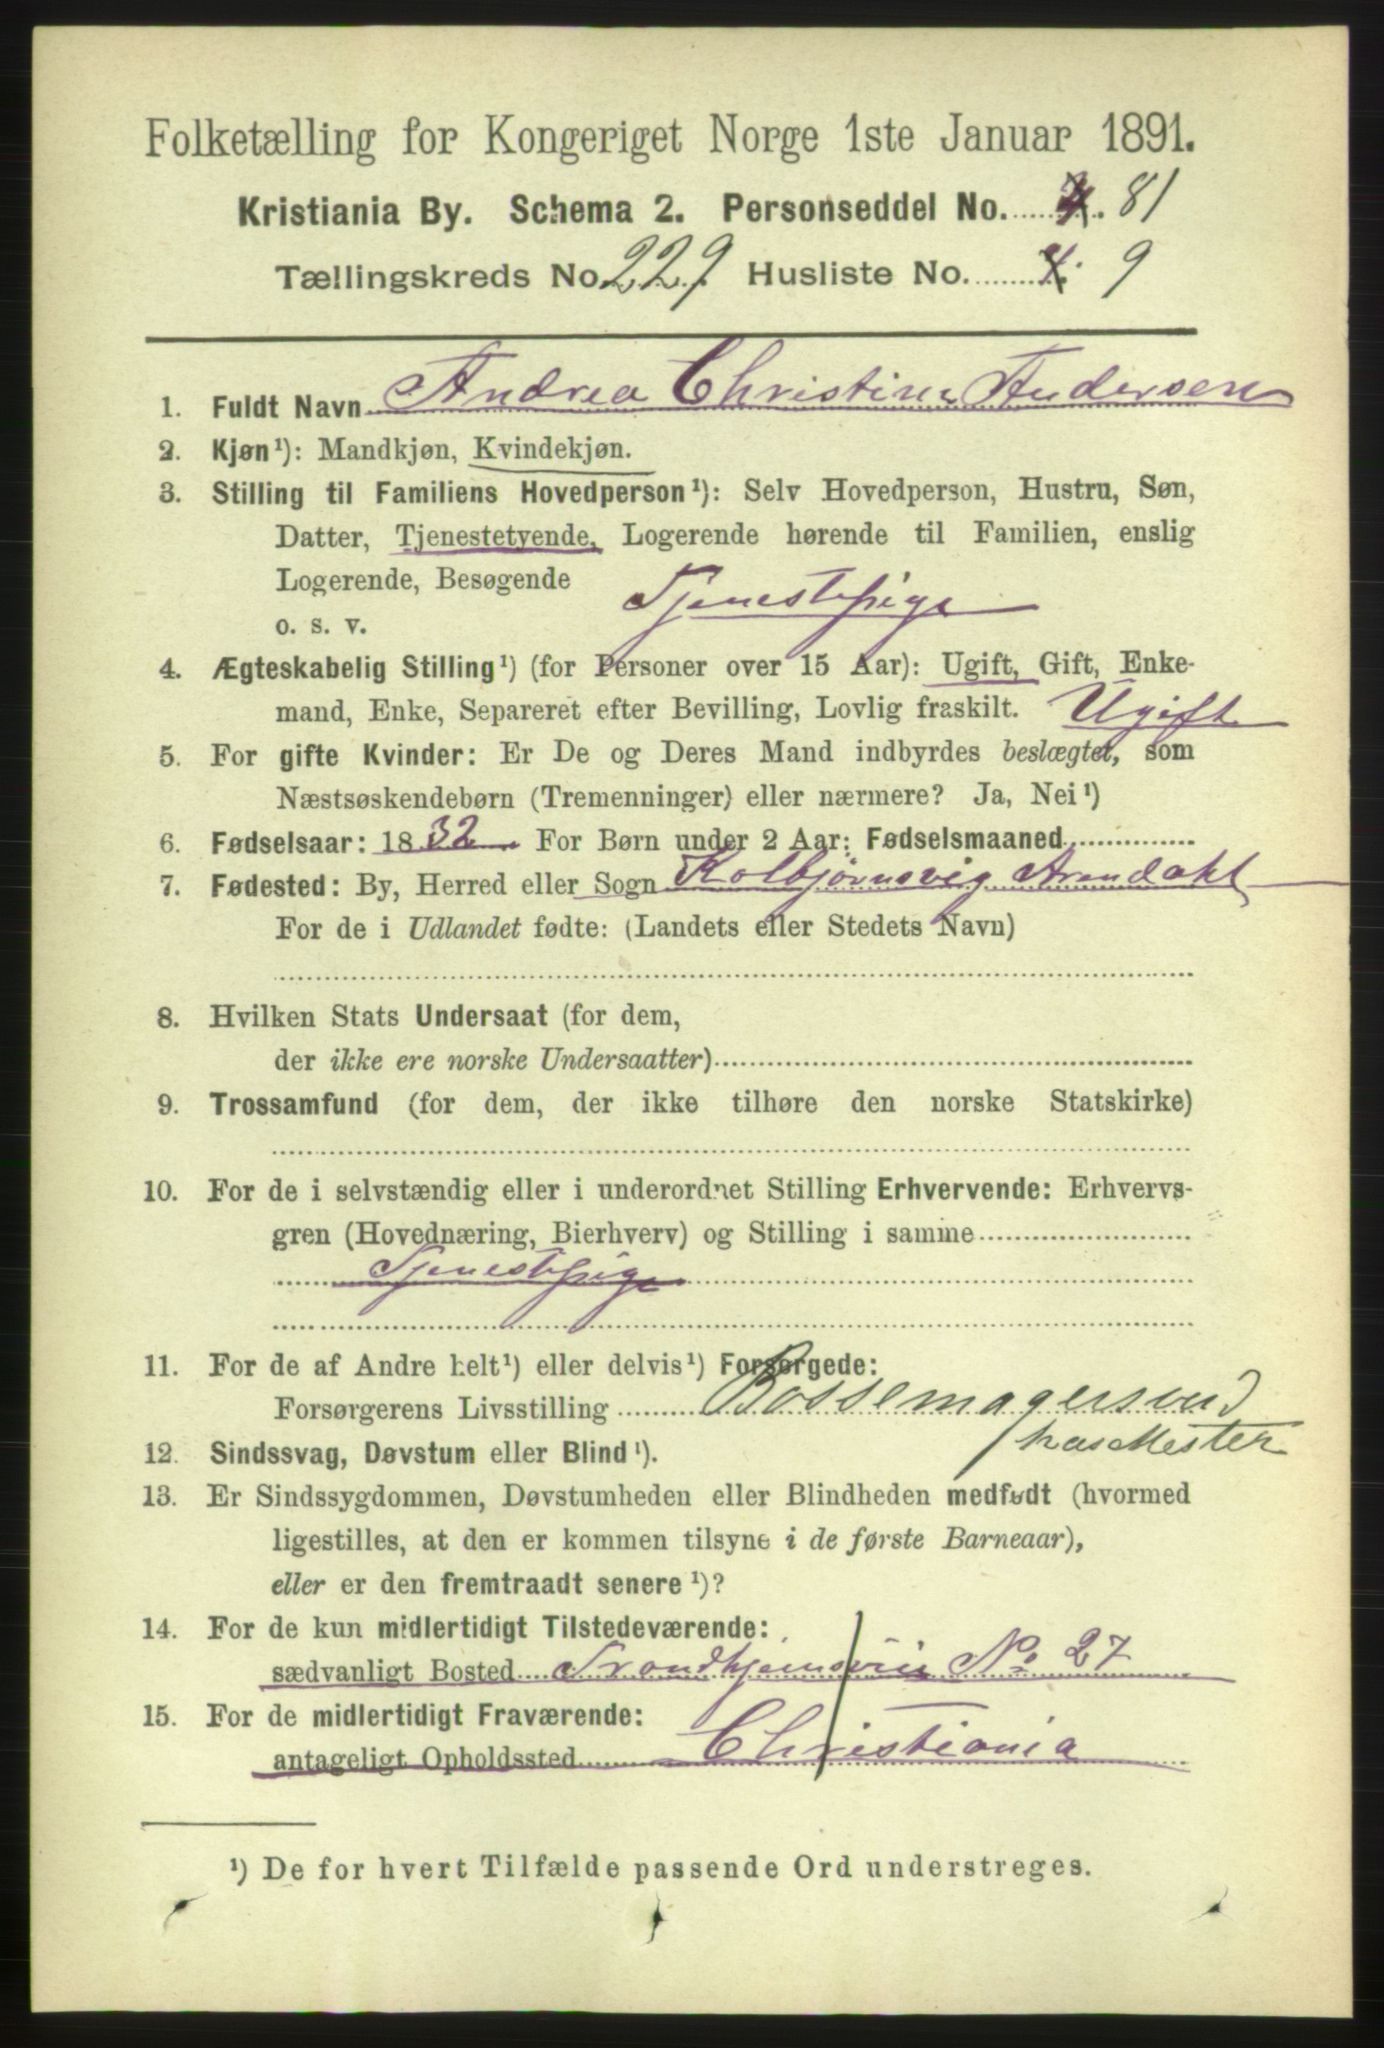 Folketælling for Kongeriget Norge 1ste Januar 1891.
Kristiania By. Schema 2. Personseddel No. 81
Tællingskreds No. 229 Husliste No. 9
1. Fuldt Navn Andrea Christine Andersen
2. Kjøn¹): Mandkjøn, Kvindekjøn.
3. Stilling til Familiens Hovedperson¹): Selv Hovedperson, Hustru, Søn,
Datter, Tjenestetyende, Logerende hørende til Familien, enslig
Logerende, Besøgende Tjenestepige
o. s. v.
4. Ægteskabelig Stilling¹) (for Personer over 15 Aar): Ugift, Gift, Enke-
mand, Enke, Separeret efter Bevilling, Lovlig fraskilt. Ugift
5. For gifte Kvinder: Er De og Deres Mand indbyrdes beslægtet, som
Næstsøskendebørn (Tremenninger) eller nærmere? Ja, Nei¹)
6. Fødselsaar: 1832 For Børn under 2 Aar: Fødselsmaaned
7. Fødested: By, Herred eller Sogn Kolbjørnsvig Arendahl
For de i Udlandet fødte: (Landets eller Stedets Navn)
8. Hvilken Stats Undersaat (for dem,
der ikke ere norske Undersaatter)
9. Trossamfund (for dem, der ikke tilhøre den norske Statskirke)
10. For de i selvstændig eller i underordnet Stilling Erhvervende: Erhvervs-
gren (Hovednæring, Bierhverv) og Stilling i samme
Tjenestepige
11. For de af Andre helt¹) eller delvis¹) Forsørgede:
Forsørgerens Livsstilling Bossemagersvend
hos Mester
12. Sindssvag, Døvstum eller Blind¹).
13. Er Sindssygdommen, Døvstumheden eller Blindheden medfødt (hvormed
ligestilles, at den er kommen tilsyne i de første Barneaar),
eller er den fremtraadt senere¹)?
14. For de kun midlertidigt Tilstedeværende:
sædvanligt Bosted Trondhjemsvei No 27
15. For de midlertidigt Fraværende:
antageligt Opholdssted Christiania
¹) De for hvert Tilfælde passende Ord understreges.